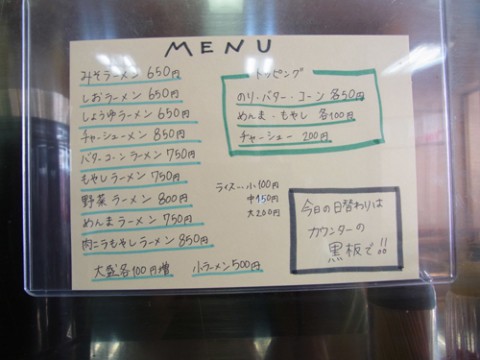 MENU
みそラーメン 650円
しおラーメン 650円
しょうゆラーメン 650円
チャーシューメン 850円
バターコーンラーメン 750円
もやしラーメン 750円
野菜ラーメン 800円
めんまラーメン 750円
肉ニラもやしラーメン 850円
大盛各100円増 小ラーメン500円
トッピング
のり・バター・コーン 各50円
めんま・もやし 各100円
チャーシュー 200円
ライス…小100円
中150円
大200円
今日の日替わりは
カウンターの
黒板で!!